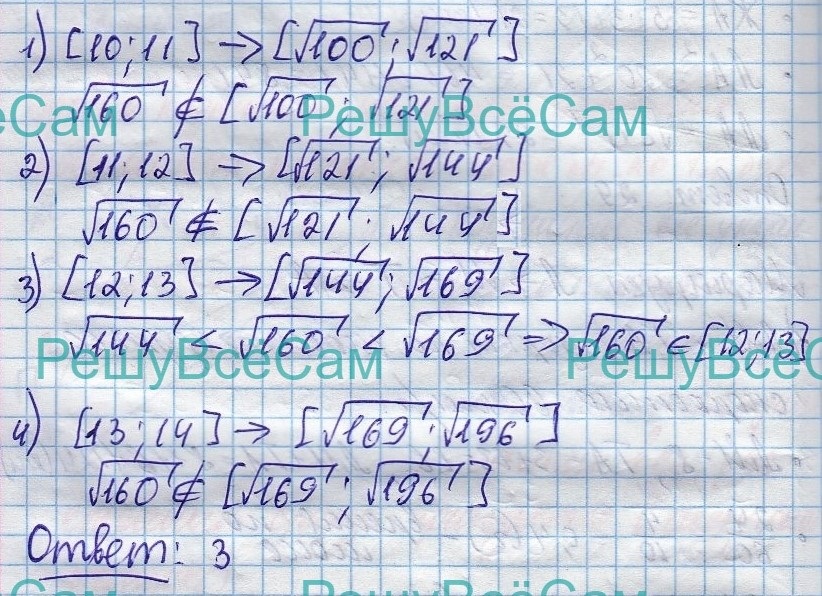 1) [10;11] → [√100; √121]
√160 ∉ [√100; √121]
РешуВсёСам РешуВсёСам
2) [11;12] → [√121; √144]
√160 ∉ [√121; √144]
3) [12;13] → [√144; √169]
√144 < √160 < √169 => √160 ∈ [12;13]
РешуВсёСам РешуВсёСам
4) [13;14] → [√169; √196]
√160 ∉ [√169; √196]
Ответ: 3